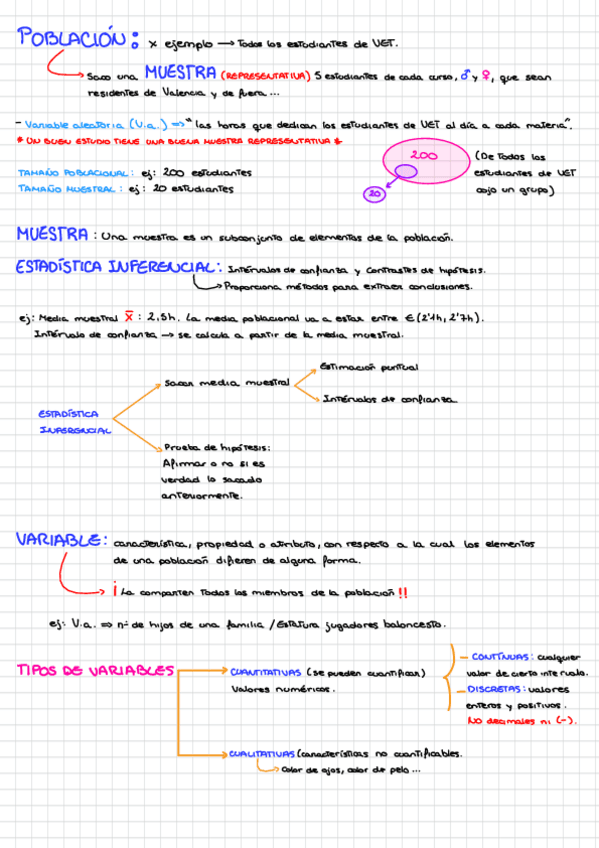 POBLACIÓN: x ejemplo → Todos los estudiantes de UET.
Saco una MUESTRA (REPRESENTATIVA) 5 estudiantes de cada curso, ♂ y ♀, que sean
residentes de Valencia y de fuera ...
- Variable aleatoria (V.a.) ⇒ "las horas que dedican los estudiantes de UET al día a cada materia".
* UN BUEN ESTUDIO TIENE UNA BUENA MUESTRA REPRESENTATIVA *
TAMAÑO POBLACIONAL: ej: 200 estudiantes
TAMAÑO MUESTRAL: ej: 20 estudiantes
200
20
(De Todos los
estudiantes de UET
cojo un grupo)
MUESTRA: Una muestra es un subconjunto de elementos de la población.
ESTADÍSTICA INFERENCIAL: Intérvalos de confianza y Contrastes de hipótesis.
Proporciona métodos para extraer conclusiones.
ej: Media muestral x̄ : 2,5h. La media poblacional va a estar entre ∈ (2'1h, 2'7h).
Intérvalo de confianza → se calcula a partir de la media muestral.
ESTADÍSTICA
INFERENCIAL
Sacar media muestral
Estimación puntual
Intérvalos de confianza
Prueba de hipótesis:
Afirmar o no si es
verdad lo sacado
anteriormente.
VARIABLE: característica, propiedad o atributo, con respecto a la cual los elementos
de una población difieren de alguna forma.
¡ La comparten Todos los miembros de la población !!
ej: V.a. ⇒ nº de hijos de una familia / Estatura jugadores baloncesto.
TIPOS DE VARIABLES
CUANTITATIVAS (se pueden cuantificar)
Valores numéricos.
- CONTÍNUAS: cualquier
valor de cierto intervalo.
- DISCRETAS: valores
enteros y positivos.
No decimales ni (-).
CUALITATIVAS (características no cuantificables.
Color de ojos, color de pelo ...